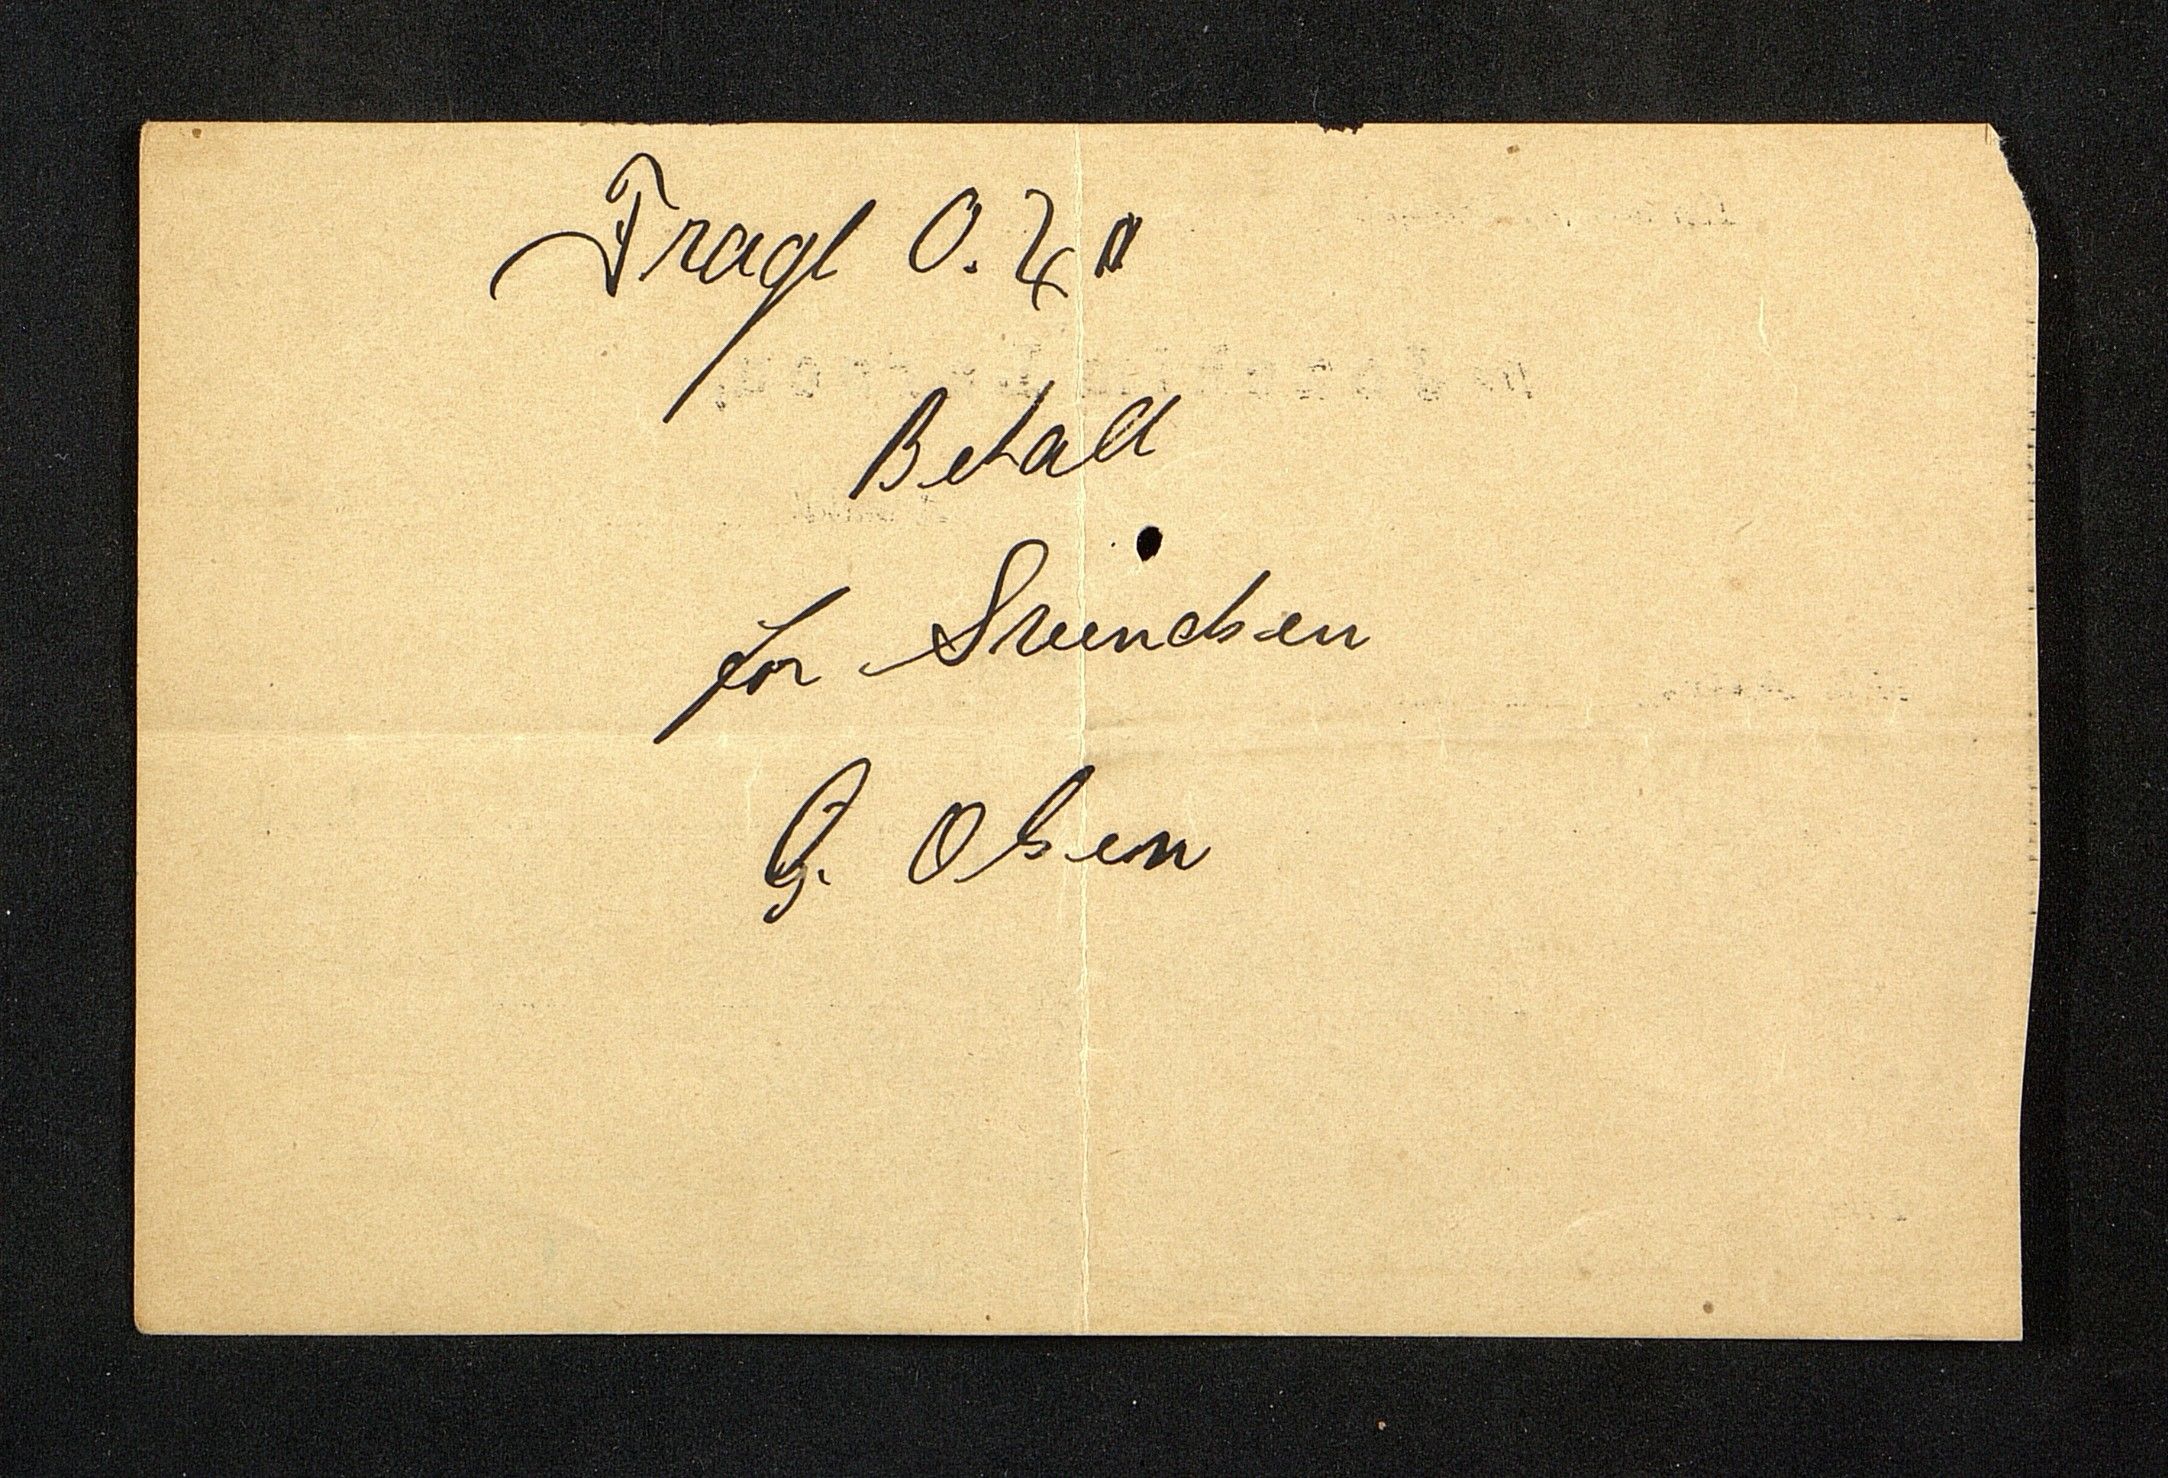 Fragt 0.40
Betalt
for Svendsen
G. Olsen